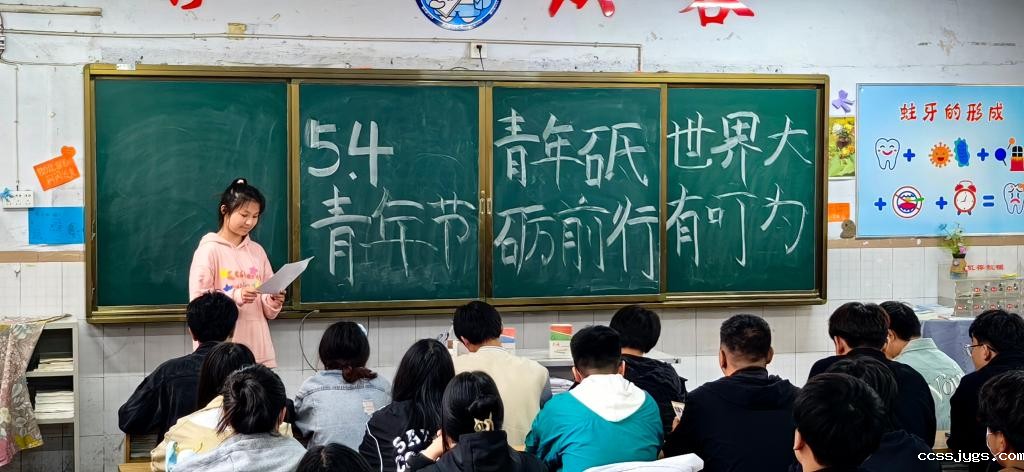 5.4
青年节
青年砥
砺前行
世界大
有叮为
蛀牙的形成
ccssjygs.com